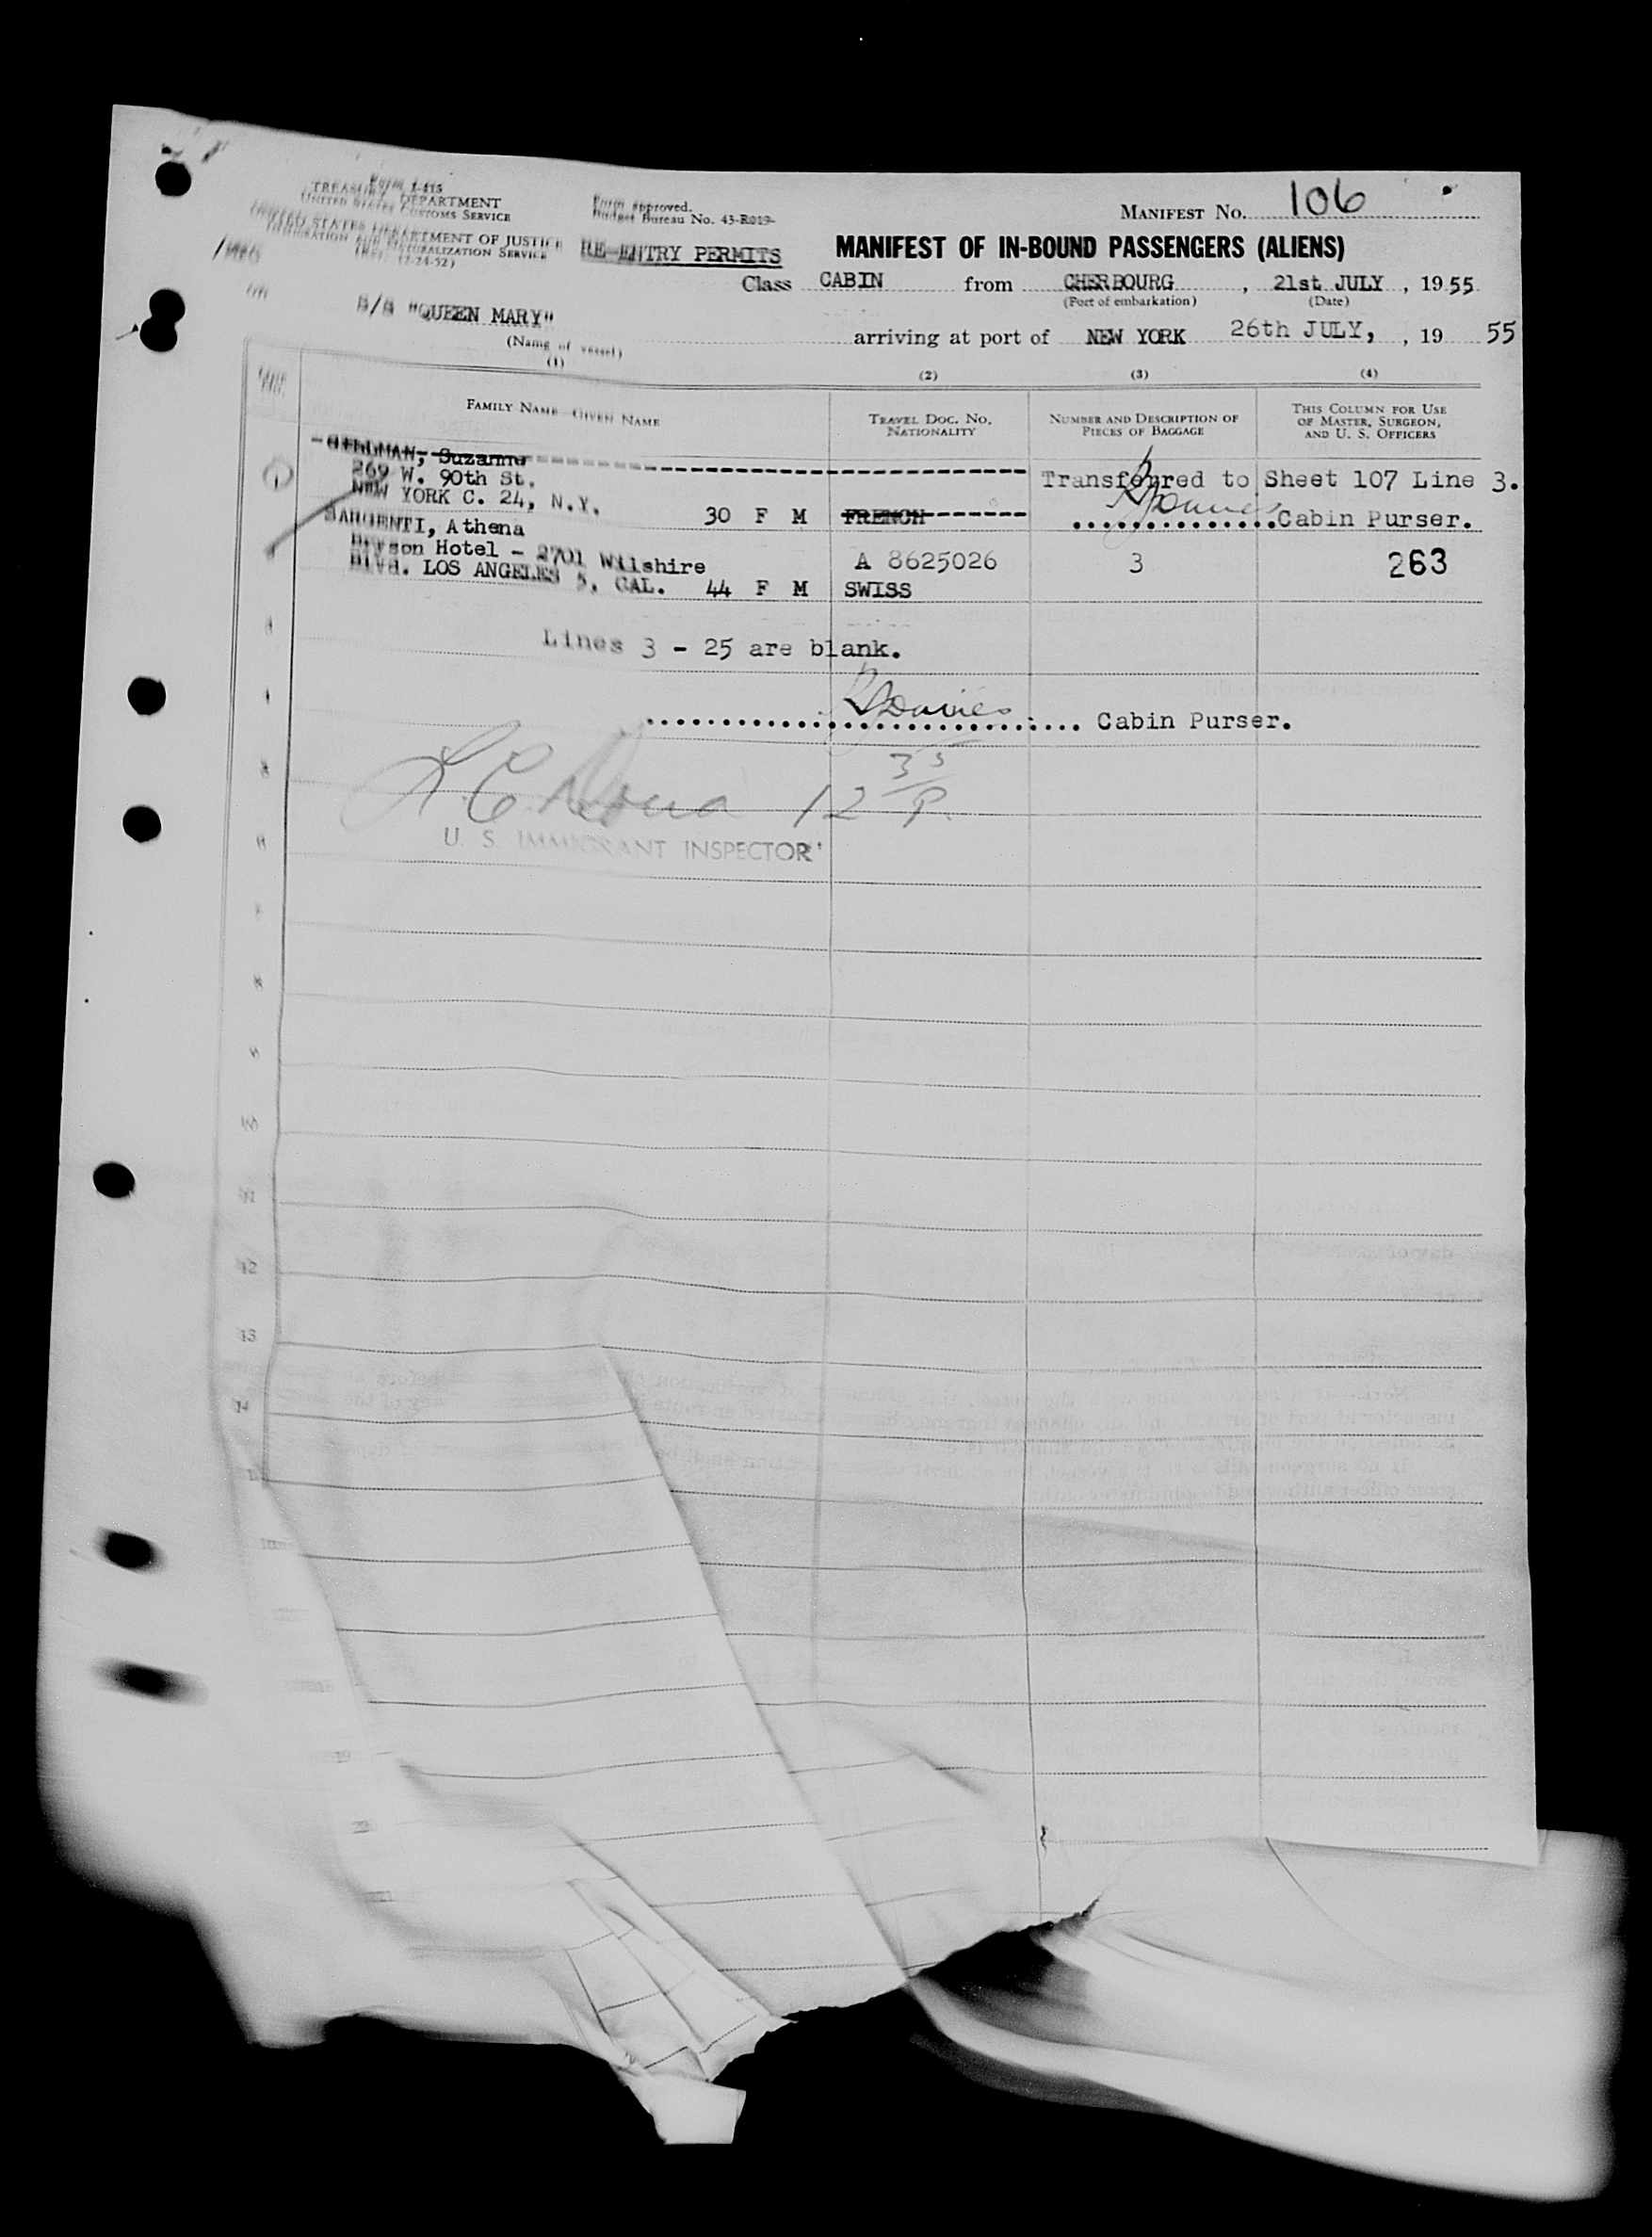 Form I-415
TREASURY DEPARTMENT
UNITED STATES CUSTOMS SERVICE
UNITED STATES DEPARTMENT OF JUSTICE
IMMIGRATION AND NATURALIZATION SERVICE
12-24-52)
Form approved.
Budget Bureau No. 43-R019-
RE-ENTRY PERMITS
MANIFEST NO. 106
MANIFEST OF IN-BOUND PASSENGERS (ALIENS)
Class CABIN from CHERBOURG, 21st JULY, 1955
(Port of embarkation) (Date)
S/S "QUEEN MARY"
(Name of vessel)
arriving at port of NEW YORK 26th JULY, , 19 55
(1) (2) (3) (4)
FAMILY NAME—GIVEN NAME
TRAVEL DOC. NO.
NATIONALITY
NUMBER AND DESCRIPTION OF
PIECES OF BAGGAGE
THIS COLUMN FOR USE
OF MASTER, SURGEON,
AND U. S. OFFICERS
Suzanne
269 W. 90th St. Transferred to Sheet 107 Line 3.
NEW YORK C. 24, N.Y. 30 F M FRENCH Cabin Purser.
SARGENTI, Athena
Hotel - 2701 Wilshire A 8625026 3 263
Blvd. LOS ANGELES 5, CAL. 44 F M SWISS
Lines 3 - 25 are blank.
Davies Cabin Purser.
12 35/P.
U. S. IMMIGRANT INSPECTOR
10
11
12
13
14